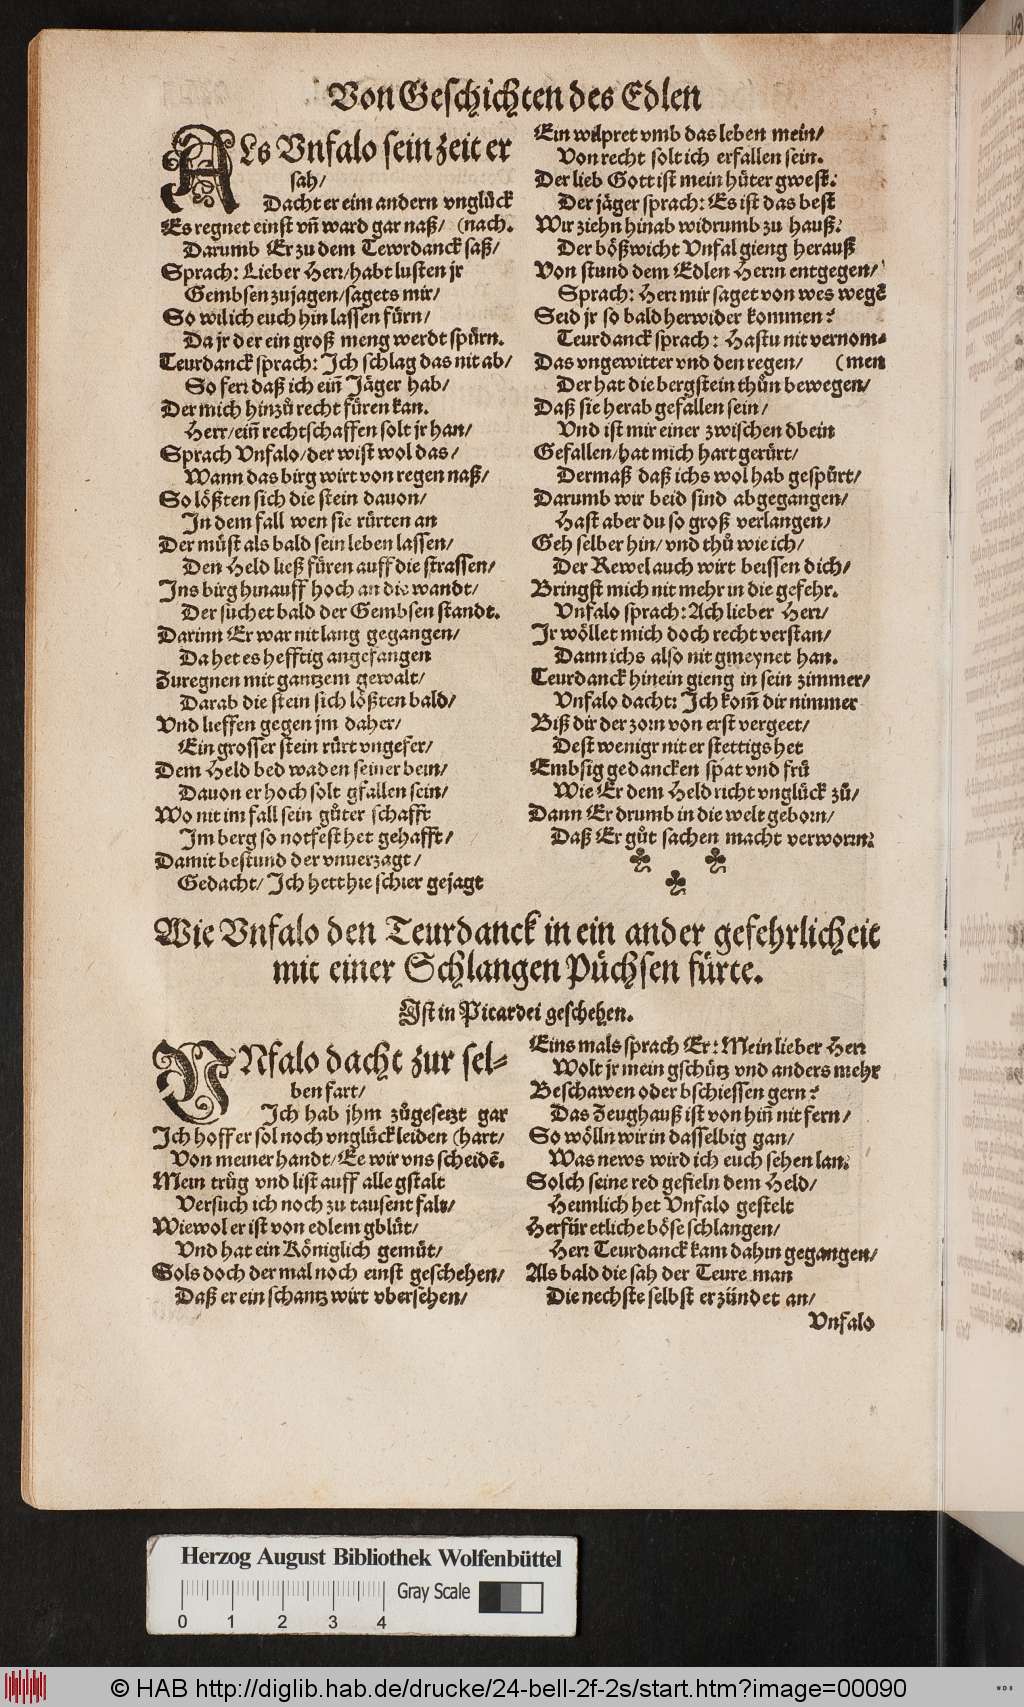 Von Geschichten des Edlen
ALs Vnfalo sein zeit er
sah/
Dacht er eim andern vnglück
Es regnet einst vñ ward gar naß/ (nach.
Darumb Er zu dem Tewrdanck saß/
Sprach: Lieber Herr/habt lusten jr
Gembsen zujagen/sagets mir/
So wil ich euch hin lassen fürn/
Da jr der ein groß meng werdt spürn.
Teurdanck sprach: Ich schlag das nit ab/
So ferr daß ich eiñ Jäger hab/
Der mich hinzů recht füren kan.
Herr/eiñ rechtschaffen solt jr han/
Sprach Vnfalo/der wist wol das/
Wann das birg wirt von regen naß/
So lößten sich die stein dauon/
In dem fall wen sie rürten an
Der müst als bald sein leben lassen/
Den Held ließ füren auff die strassen/
Ins birg hinauff hoch an die wandt/
Der suchet bald der Gembsen standt.
Darinn Er war nit lang gegangen/
Da het es hefftig angefangen
Zuregnen mit gantzem gewalt/
Darab die stein sich lößten bald/
Vnd lieffen gegen jm daher/
Ein grosser stein rürt vngefer/
Dem Held bed waden seiner bein/
Dauon er hoch solt gfallen sein/
Wo nit im fall sein gůter schafft
Im berg so notfest het gehafft/
Damit bestund der vnuerzagt/
Gedacht/ Ich hett hie schier gejagt
Ein wilpret vmb das leben mein/
Von recht solt ich erfallen sein.
Der lieb Gott ist mein hüter gwest:
Der jäger sprach: Es ist das best
Wir ziehn hinab widrumb zu hauß:
Der bößwicht Vnfal gieng herauß
Von stund dem Edlen Herrn entgegen/
Sprach: Herr mir saget von wes wegē
Seid jr so bald herwider kommen?
Teurdanck sprach: Hastu nit vernom-
Das vngewitter vnd den regen/ (men
Der hat die bergstein thůn bewegen/
Daß sie herab gefallen sein/
Vnd ist mir einer zwischen dbein
Gefallen/hat mich hart gerürt/
Dermaß daß ichs wol hab gespürt/
Darumb wir beid sind abgegangen/
Hast aber du so groß verlangen/
Geh selber hin/ vnd thů wie ich/
Der Rewel auch wirt beissen dich/
Bringst mich nit mehr in die gefehr.
Vnfalo sprach: Ach lieber Herr/
Ir wöllet mich doch recht verstan/
Dann ichs also nit gmeynet han.
Teurdanck hinein gieng in sein zimmer/
Vnfalo dacht: Ich kom̃ dir nimmer
Biß dir der zorn von erst vergeet/
Dest wenigr nit er stettigs het
Embsig gedancken spat vnd frü
Wie Er dem Held richt vnglück zů/
Dann Er drumb in die welt geborn/
Daß Er gůt sachen macht verworrn:
Wie Vnfalo den Teurdanck in ein ander gefehrlicheit
mit einer Schlangen Püchsen fürte.
Ist in Picardei geschehen.
VNfalo dacht zur sel-
ben fart/
Ich hab jhm zůgesetzt gar
Ich hoff er sol noch vnglück leiden (hart/
Von meiner handt/Ee wir vns scheidē.
Mein trüg vnd list auff alle gstalt
Versuch ich noch zu tausent falt/
Wiewol er ist von edlem gblüt/
Vnd hat ein Königlich gemüt/
Sols doch der mal noch einst geschehen/
Daß er ein schantz wirt vbersehen/
Eins mals sprach Er: Mein lieber Herr
Wolt jr mein gschütz vnd anders mehr
Beschawen oder bschiessen gern?
Das Zeughauß ist von hiñ nit fern/
So wölln wir in dasselbig gan/
Was news wird ich euch sehen lan:
Solch seine red gefieln dem Held/
Heimlich het Vnfalo gestelt
Herfür etliche böse schlangen/
Herr Teurdanck kam dahin gegangen/
Als bald die sah der Teure man
Die nechste selbst erzündet an/
Vnfalo
Herzog August Bibliothek Wolfenbüttel
Gray Scale
0 1 2 3 4
© HAB http://diglib.hab.de/drucke/24-bell-2f-2s/start.htm?image=00090